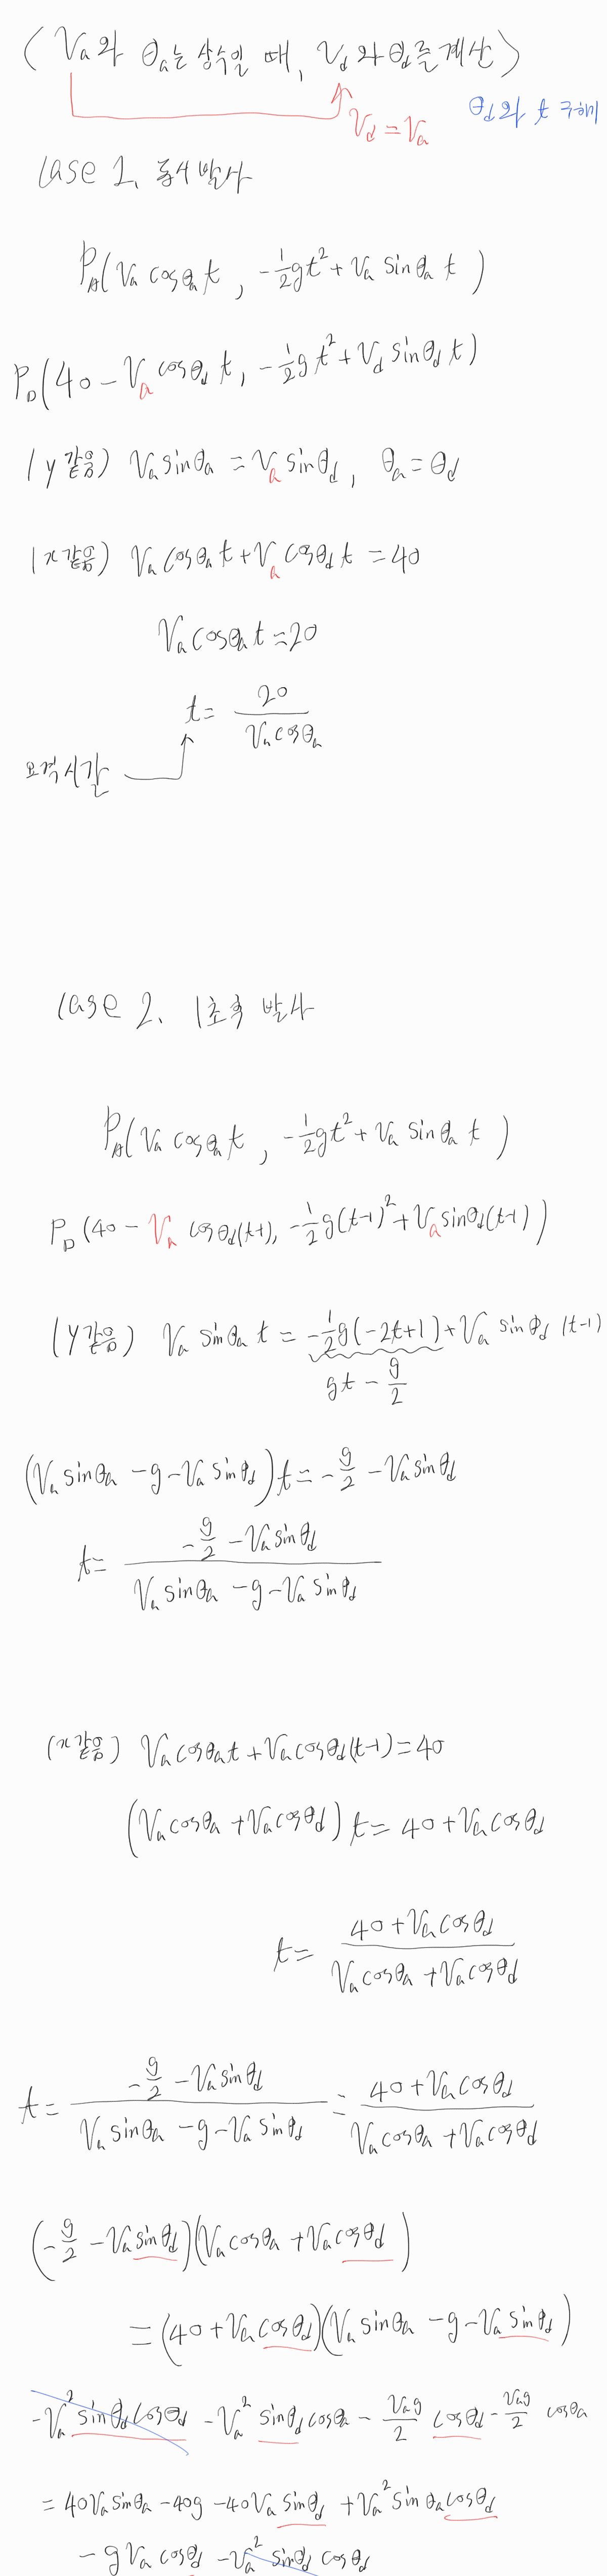 (Va와 θa는 상수일 때, Vd와 θd를 계산)
Vd = Va
θd와 t 구하기
Case 1. 동시 발사
PA(Va cosθa t, -1/2 gt² + Va sinθa t)
PD(40 - Va cosθd t, -1/2 gt² + Vd sinθd t)
(y 같음) Va sinθa = Va sinθd, θa = θd
(x 같음) Va cosθa t + Va cosθd t = 40
Va cosθa t = 20
t = 20 / Va cosθa
요격시간
Case 2. 1초 후 발사
PA(Va cosθa t, -1/2 gt² + Va sinθa t)
PD(40 - Va cosθd(t-1), -1/2 g(t-1)² + Va sinθd(t-1))
(y 같음) Va sinθa t = -1/2 g(-2t+1) + Va sinθd (t-1)
gt - g/2
(Va sinθa - g - Va sinθd)t = -g/2 - Va sinθd
t = (-g/2 - Va sinθd) / (Va sinθa - g - Va sinθd)
(x 같음) Va cosθa t + Va cosθd(t-1) = 40
(Va cosθa + Va cosθd) t = 40 + Va cosθd
t = (40 + Va cosθd) / (Va cosθa + Va cosθd)
t = (-g/2 - Va sinθd) / (Va sinθa - g - Va sinθd) = (40 + Va cosθd) / (Va cosθa + Va cosθd)
(-g/2 - Va sinθd)(Va cosθa + Va cosθd)
= (40 + Va cosθd)(Va sinθa - g - Va sinθd)
-Va² sinθd cosθd - Va² sinθd cosθa - Vag/2 cosθd - Vag/2 cosθa
= 40Va sinθa - 40g - 40Va sinθd + Va² sinθa cosθd
- gVa cosθd - Va² sinθd cosθd